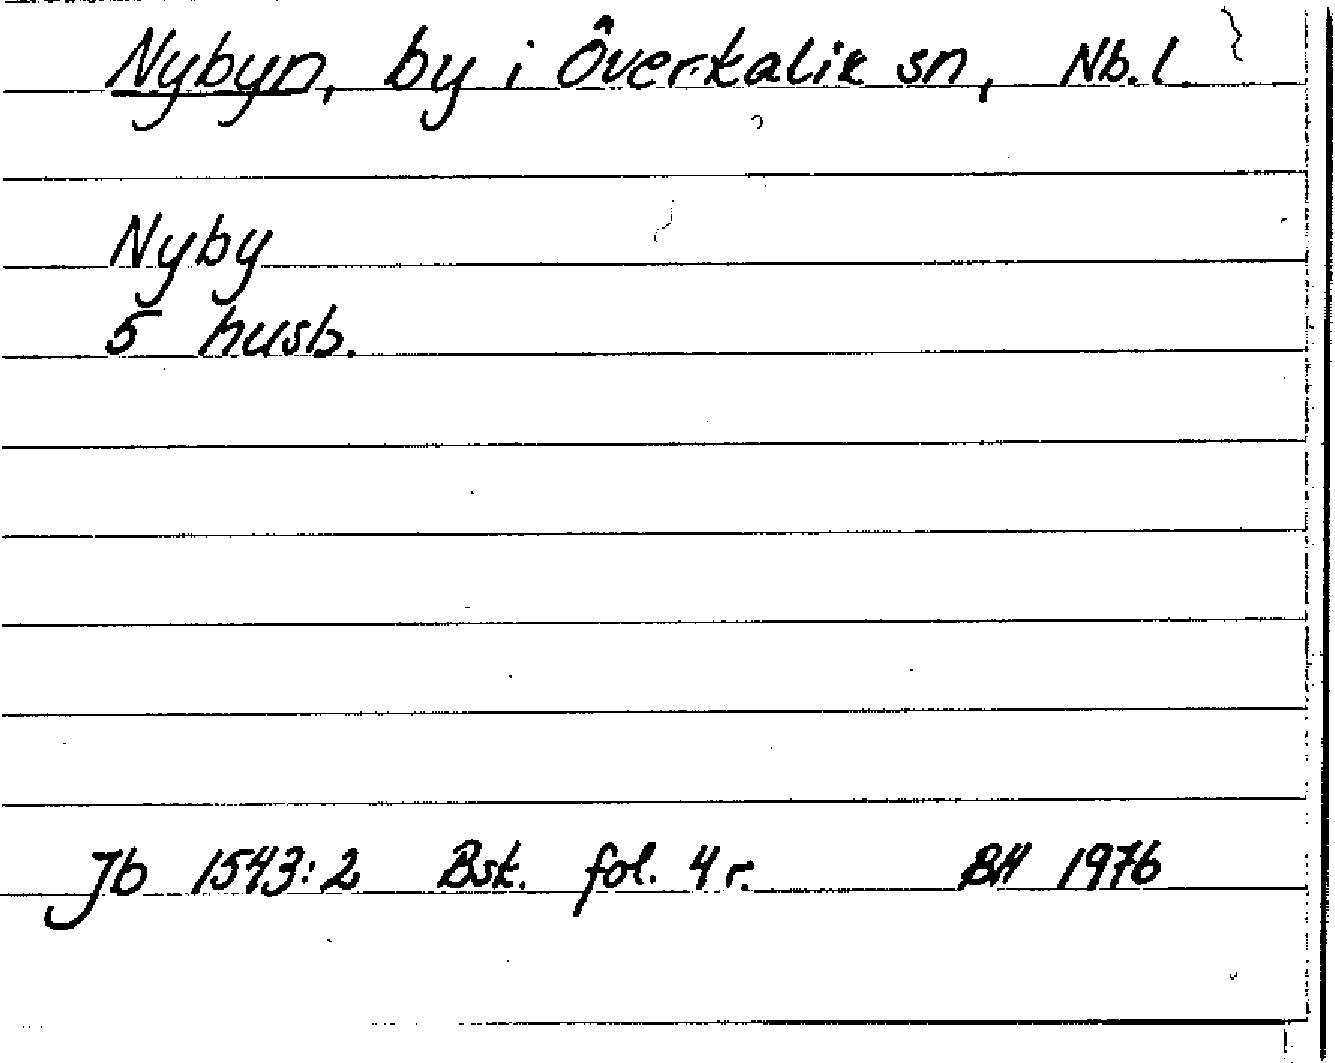 Nybyn, by i Överkalix sn, Nb. l.
Nyby
5 husb.
Jb 1543:2 Bsk. fol. 4 r. BH 1976